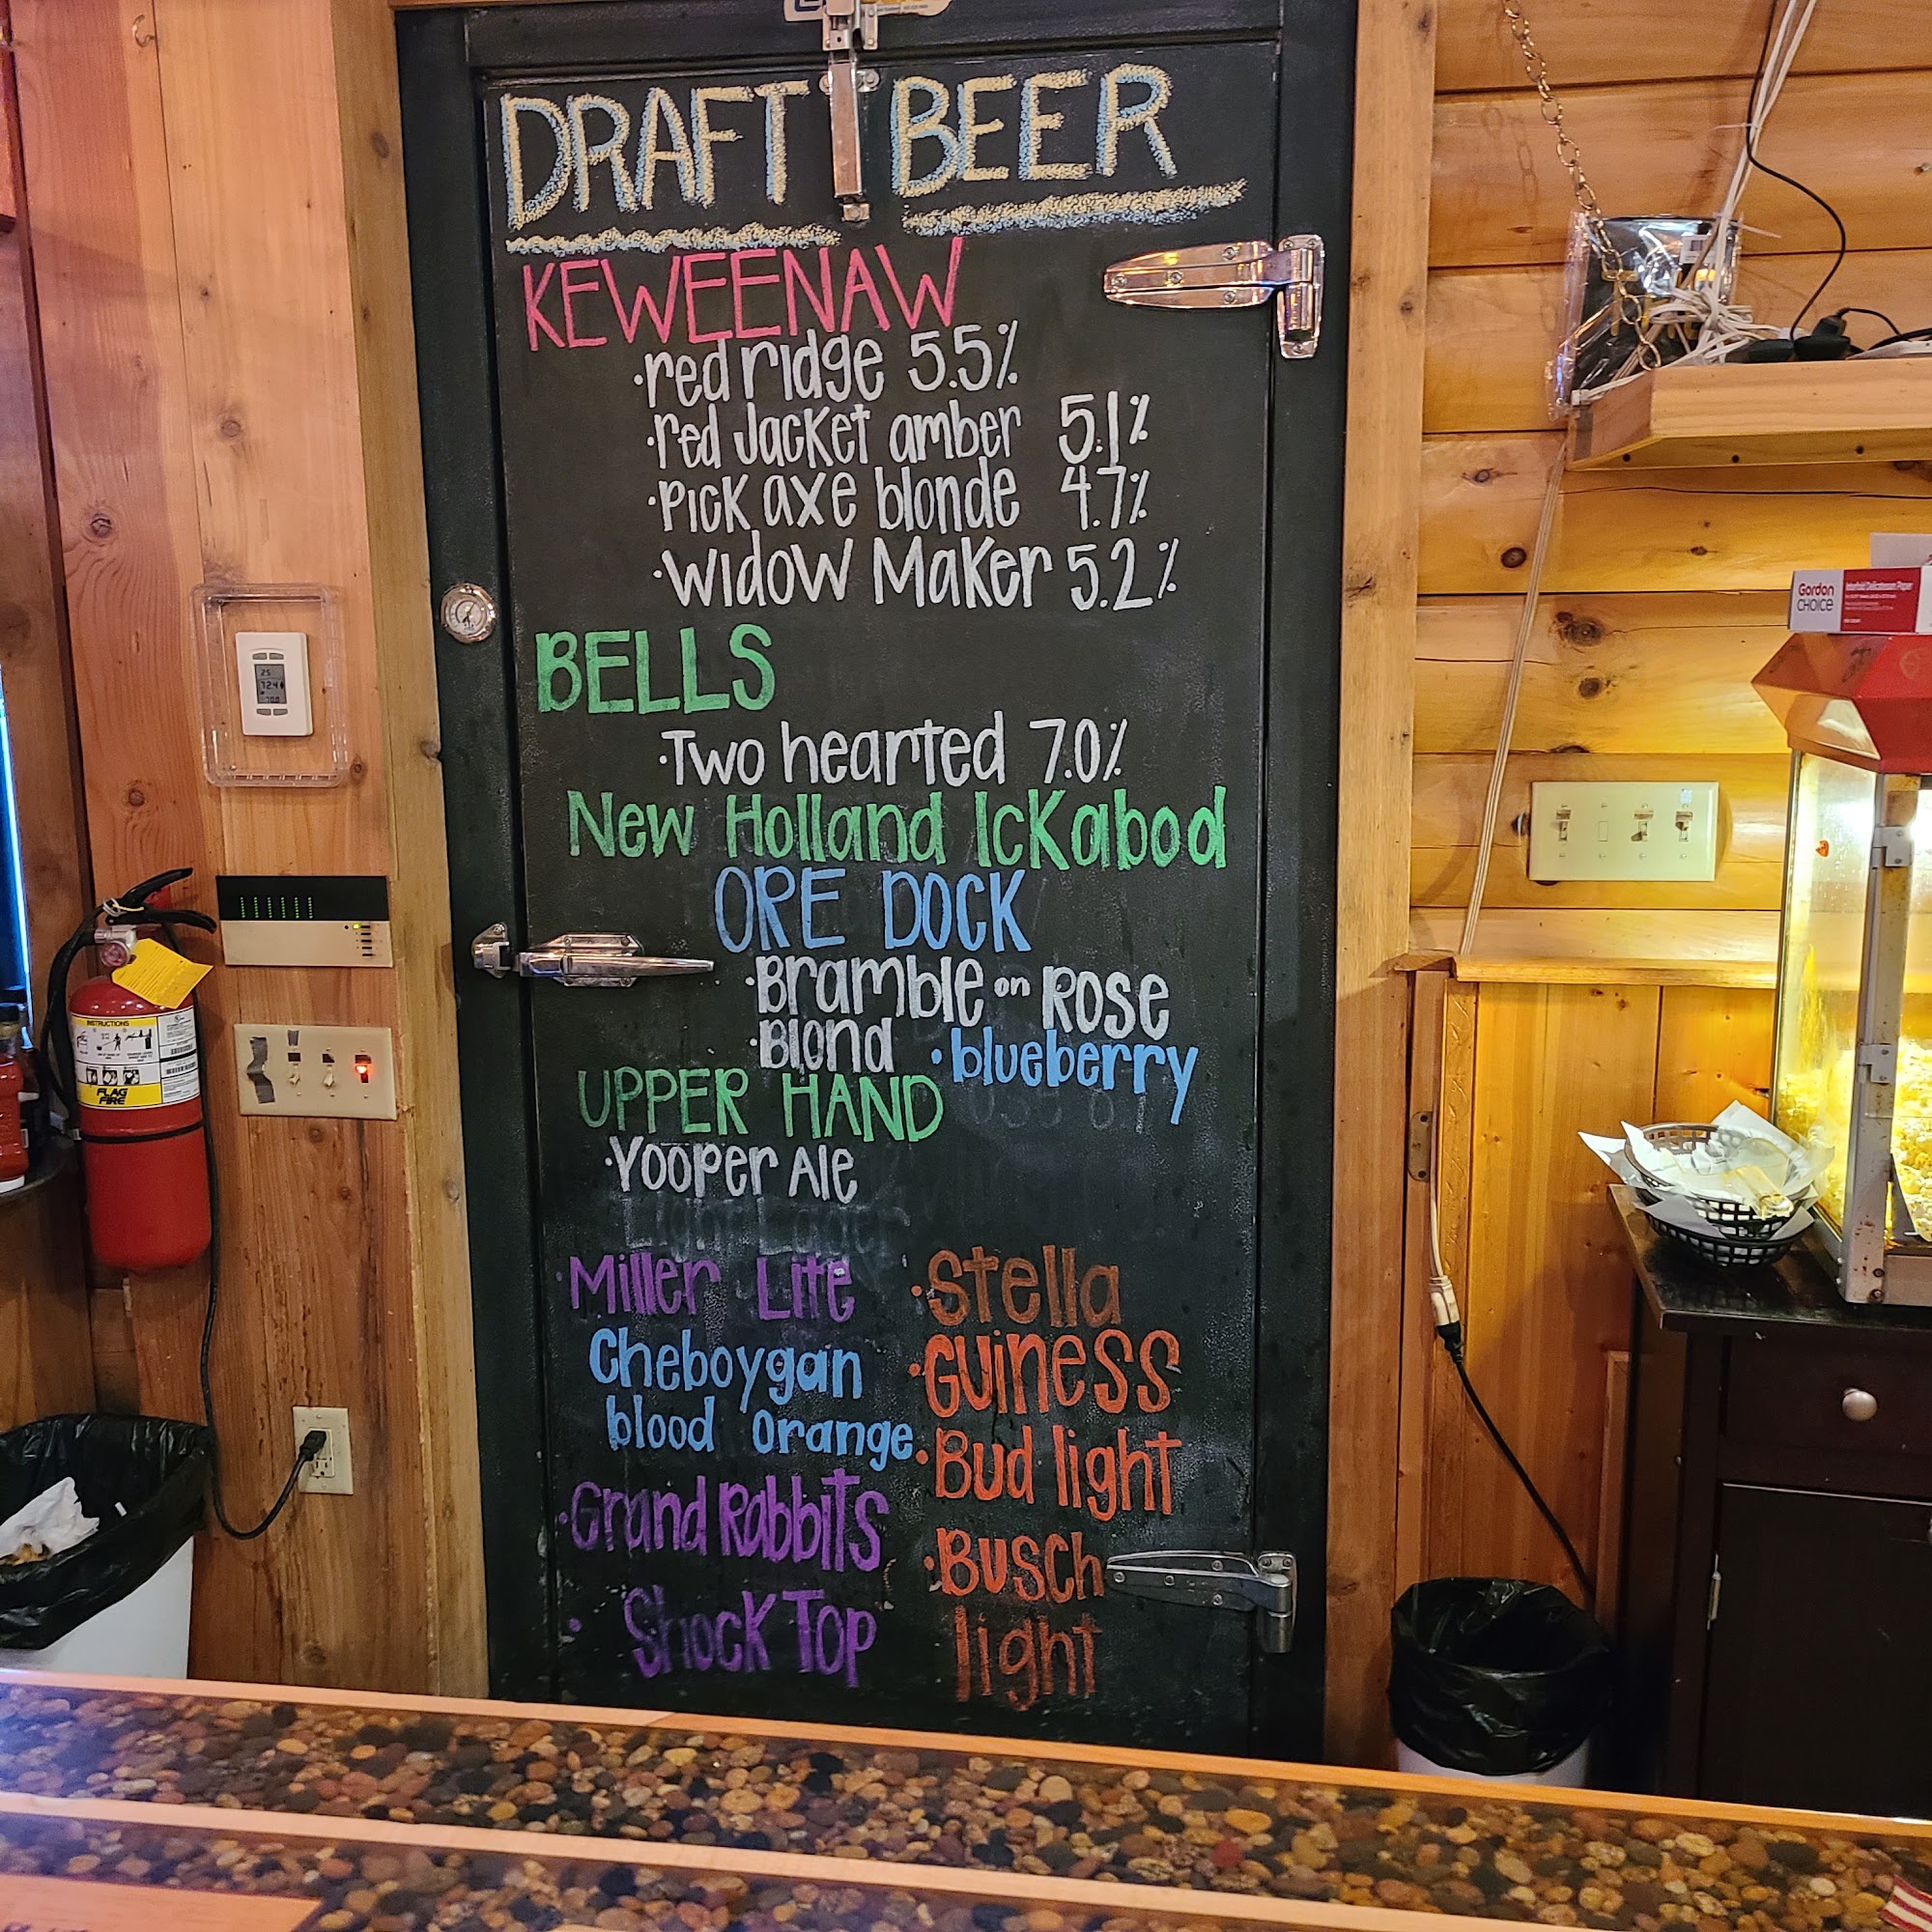 DRAFT BEER
KEWEENAW
·red ridge 5.5%
·red Jacket amber 5.1%
·Pick axe blonde 4.7%
·Widow Maker 5.2%
BELLS
·Two hearted 7.0%
New Holland Ickabod
ORE DOCK
·Bramble on Rose
·Blond ·blueberry
UPPER HAND
·Yooper Ale
Light Lager
Miller Lite
Cheboygan
blood orange
·Grand Rabbits
· Shock Top
·Stella
·Guiness
·Bud light
·Busch
light
Gordon
CHOICE
INSTRUCTIONS
FLAG
FIRE